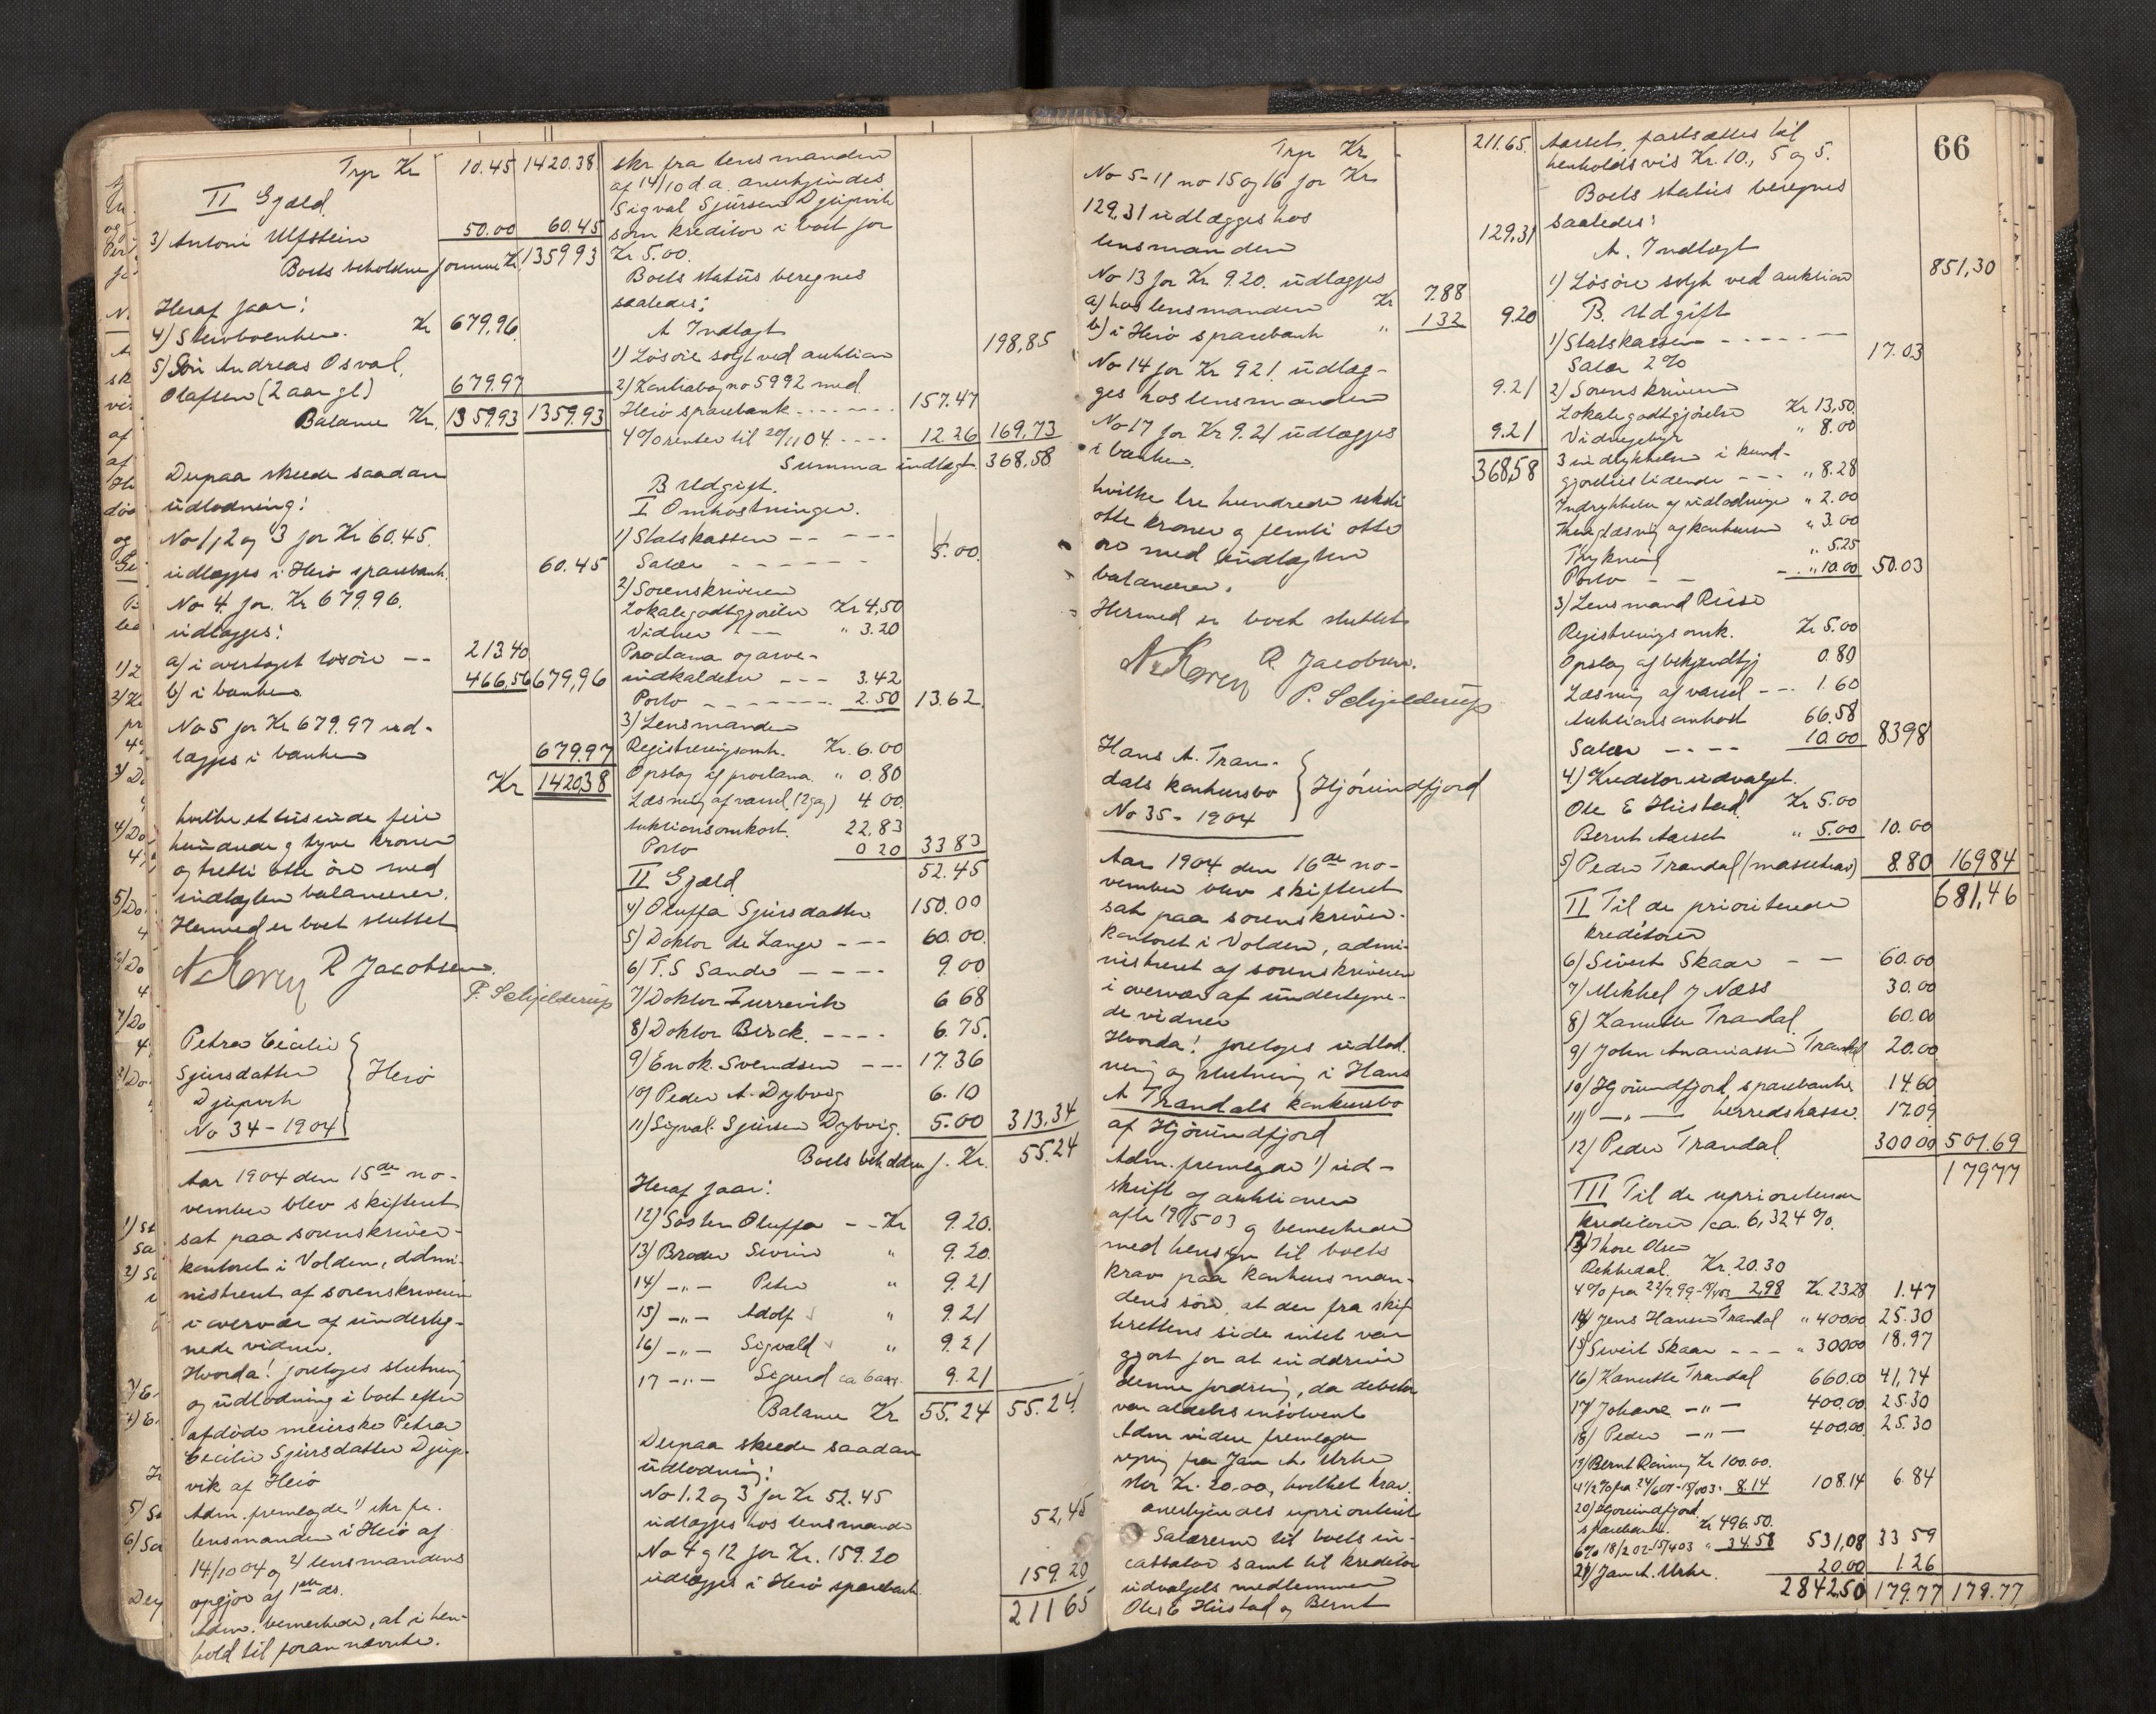 Trp Kr 10.45 1420.38
II Gjæld.
3) Antoni Ulfstein 50.00 60.45
Boets beholdne formue Kr 1359.93
Heraf faar:
4) Kr 679.96
5) Søn Andreas Osval,
Olafsen (2 aar gl) 679.97
Balance Kr. 1359.93 1359.93
Derpaa skeede saadan
udlodning:
No 1, 2 og 3 for Kr 60.45.
udlægges i Herø sparebank. 60.45
No 4 for Kr 679.96.
udlægges:
a) i overtaget løsøre -- 213.40
b) i banken 466.56 679,96
No 5 for Kr 679.97 ud-
lægges i banken 679.97
Kr 1420.38
hvilke et tusinde fire
hundrede og tyve kroner
og tretti otte øre med
indtægten balancerer.
Hermed er boet sluttet
R Jacobsen.
P. Schjelderup
Petra Cecilie
Sjursdatter
Djupvik
No 34 - 1904
Herø
Aar 1904 den 15de no-
vember blev skifteret
sat paa sorenskriver-
kontoret i Volden, admi-
nistreret af sorenskriveren
i overvær af underteg-
nede vidner.
Hvorda! foretoges slutning
og udlodning i boet efter
afdøde meierske Petra
Cecilie Sjursdatter Djup-
vik af Herø
Adm. fremlagde 1) skr. fra
lensmanden i Herø af
14/10 04 og 2) lensmandens
opgjør af 1ste ds.
Adm. bemerkede, at i hen-
hold til foran nævnte.
skr. fra lensmanden
af 14/10 d.a. anerkjendes
Sigval Sjursen Djupvik
som kreditor i boet for
Kr 5.00.
Boets status beregnes
saaledes:
A Indtægt
1) Løsøre solgt ved auktion 198,85
2) Kontrabog no 5992 med
Herø sparebank ------- 157.47
4 % renter til 20/11 04 ---- 12.26 169,73
Summa indtægt 368,58
B Udgift.
I Omkostninger.
1) Statskassen -- ---
Salær ------ 5.00
2) Sorenskriveren
Lokalegodtgjørelse Kr 4,50
Vidner --- " 3.20
Proclama og arve-
indkaldelse --- 3.42
Porto ------- 2.50 13.62
3) Lensmanden
Registreringsomk. Kr. 6.00
Opslag af proclama " 0.80
Læsning af varsel (2 gg) 4.00
Auktionsomkost. 22,83
Porto 0 20 33 83
52.45
II Gjæld
4) Oluffa Sjursdatter 150.00
5) Doktor de Lange --- 60.00
6) T. S Sande ---- 9.00
7) Doktor 6 68
8) Doktor Birck. ---- 6.75.
9) Enok. Svendsen --- 17.36
10) Peder A. Dybvig 6.10
11) Sigval Sjursen Dybvig. 5.00 313,34
Boets beholdne f. Kr. 55.24
Heraf faar:
12) Søster Oluffa -- Kr 9.20.
13) Broder Severin " 9.20
14) -"- Peter " 9.21
15) -"- Adolf " 9.21
16) -"- Sigvald " 9.21
17 -"- Sigurd ca 6 aar. 9.21
Balance Kr 55.24 55.24
Derpaa skeede saadan
udlodning:
No 1. 2 og 3 for Kr 52.45
udlægges hos lensmanden 52,45
No 4 og 12 for Kr. 159.20
udlægges i Herø sparebank 159.20
211 65
66
Trp Kr 211.65.
No 5-11 no 15 og 16 for Kr
129,31 udlægges hos
lensmanden 129,31
No 13 for Kr 9.20. udlægges
a) hos lensmanden Kr 7.88
b) i Herø sparebank " 1 32 9.20
No 14 for Kr 9 21 udlæg-
ges hos lensmanden 9.21
No 17 for Kr 9.21 udlægges
i banken. 9.21
368,58
hvilke tre hundrede seksti
otte kroner og femti otte
øre med indtægten
balancerer.
Hermed er boet sluttet
R. Jacobsen.
P. Schjelderup
Hans A. Tran-
dals konkursbo
No 35 - 1904
Hjørundfjord
Aar 1904 den 16de no-
vember blev skifteret
sat paa sorenskriver-
kontoret i Volden, admi-
nistreret af sorenskriveren
i overvær af undertegne-
de vidner
Hvorda! foretoges udlod-
ning og slutning i Hans
A Trandals konkursbo
af Hjørundfjord
Adm. fremlagde 1) ud-
skrift af auktionen
afh. 19/5 03 og bemerkede
med hensyn til boets
krav paa konkursman-
dens søn, at der fra skif-
terettens side intet var
gjort for at inddrive
denne fordring, da debitor
var aldeles insolvent
Adm videre fremlagde
regning fra Jan A. Urke
stor Kr. 20.00, hvilket krav
anerkjendes uprioriteret
Salærerne til boets in-
cassator samt til kreditor-
udvalgets medlemmer
Ole E Hustad og Bernt
Aarset, fastsættes til
henholdsvis Kr. 10., 5 og 5.
Boets status beregnes
saaledes:
A. Indtægt
1) Løsøre solgt ved auktion 851,30
B. Udgift
1) Statskassen ------
Salær 2 % 17.03
2) Sorenskriveren
Lokalegodtgjørelse Kr 13,50
Vidnegebyr " 8.00
3 indrykkelser i kund-
gjørelsestidende --- " 8.28
Indrykkelse af udlodninge " 2.00
Thinglæsning af konkursen " 3.00
Trykning " 5.25
Porto -- -- " 10.00 50.03
3) Lensmand Riise
Registreringsomk. Kr 5.00
Opslag af bekjendtgj 0.80
Læsning af varsel --- 1.60
Auktionsomkost 66.58
Salær ---- 10.00 83 98
4) Kreditorudvalget.
Ole E Hustad Kr 5.00
Bernt Aarset " 5.00 10.00
5) Peder Trandal 8.80 169 84
681,46
II Til de prioriterede
kreditorer
6) Sivert Skaar -- 60.00
7) Mikkel J Næss 30.00
8) Kanutte Trandal 60.00
9) John Ananiassen Trandal 20.00
10) Hjørundfjord sparebank 14.60
11) -"- herredskasse. 17.09
12) Peder Trandal 300 00 501.69
179 77
III Til de uprioriterede
kreditorer ca. 6,324 %.
13) Thore Olsen
Rekkedal Kr. 20.30
2,98 Kr. 23 28 1.47
14) Jens Hansen Trandal " 400 00 25.30
15) Sivert Skaar --- " 300 00 18.97
16) Kanutte Trandal 660.00 41,74
17) Johanne -"- 400.00 25.30
18) Peder -"- 400.00 25.30
19) Bernt Kr 100.00.
8.14 108.14 6.84
20) Hjørundfjord
sparebank. Kr 496.50.
6 % 18/2 02-15/4 03 " 34.58 531,08 33 59
21) Jan A. Urke. 20.00 1.26
2842,50 179.77 179.77